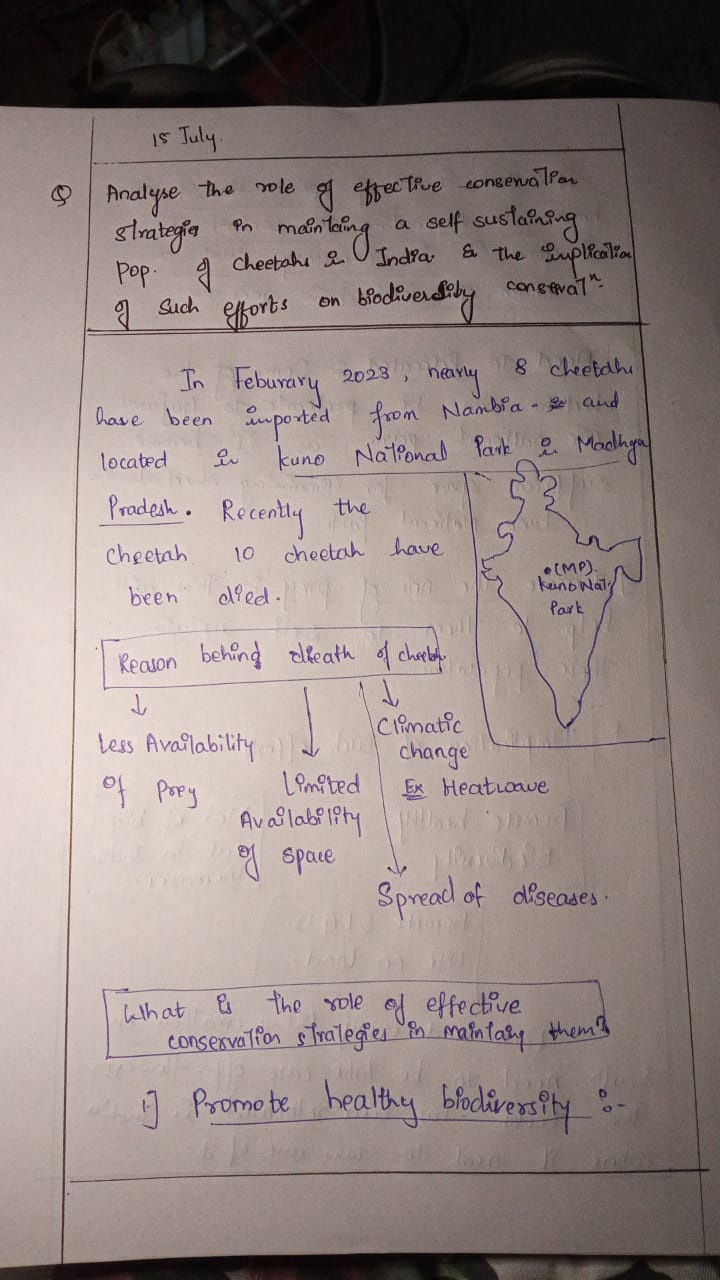 15 July.
Q Analyse the role of effective conservation
strategies in maintaing a self sustaining
Pop. of cheetahs in India & the implication
of such efforts on biodiversity conservatn.
In Feburary 2023, nearly 8 cheetahs
have been imported from Nambia - and
located in kuno National Park in Madhya
Pradesh. Recently the
cheetah 10 cheetah have
been died.
(MP).
Kuno Nat.
Park
Reason behind death of cheetah
Less Availability
Of Prey
Limited
Availability
of space
Climatic
change
Ex Heatwave
Spread of diseases.
What is the role of effective
conservation strategies in maintaing them?
1] Promote healthy biodiversity :-